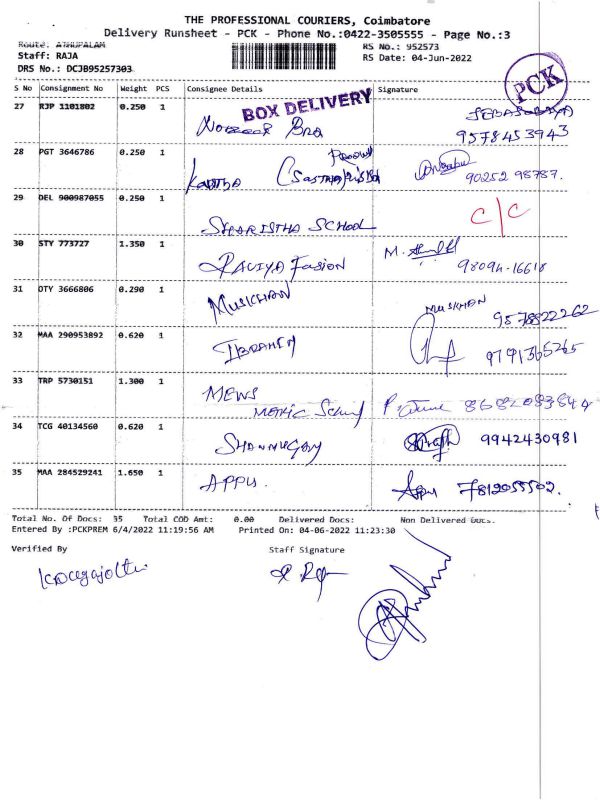 THE PROFESSIONAL COURIERS, Coimbatore
Delivery Runsheet - PCK - Phone No.:0422-3505555 - Page No.:3
Route: ATHUPALAM
Staff: RAJA
DRS No.: DCJB95257303
RS No.: 952573
RS Date: 04-Jun-2022
PCK
S No Consignment No Weight PCS Consignee Details Signature
BOX DELIVERY
27 RJP 1101802 0.250 1
9578453943
28 PGT 3646786 0.250 1
90252 98787.
29 DEL 900987055 0.250 1 SHARISTHA SCHOOL C/C
30 STY 773727 1.350 1 RAVIYA Fasion M.
98094-16618
31 OTY 3666806 0.290 1 MUSKHAN MUSKHAN 9578822262
32 MAA 290953892 0.620 1 IBRAHEM 9791365265
33 TRP 5730151 1.300 1 MEWS
8682083844
34 TCG 40134560 0.620 1 SHANMUGAM 9942430981
35 MAA 284529241 1.650 1 APPU. Appu 7812055502.
Total No. Of Docs: 35 Total COD Amt: 0.00 Delivered Docs: Non Delivered Docs.
Entered By :PCKPREM 6/4/2022 11:19:56 AM Printed On: 04-06-2022 11:23:30
Verified By Staff Signature